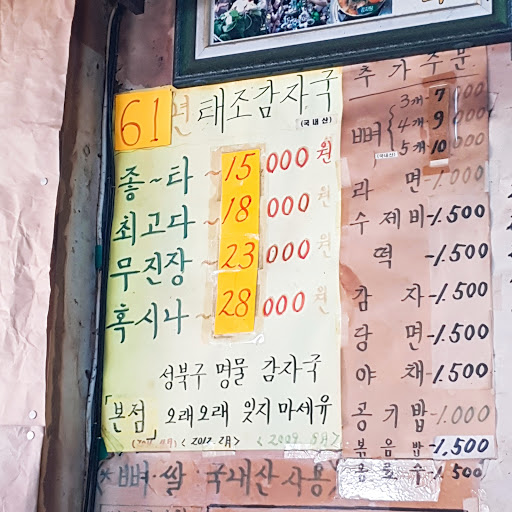 61년 태조감자국
(국내산)
좋~타 ~15000원
최고다 ~18000원
무진장 ~23000원
혹시나 ~28000원
성북구 명물 감자국
「본점」 오래오래 잊지마세유
<2012. 2月> <2009. 9月>
*뼈·쌀·국내산 사용
추가주문
뼈 { 3개 7000
4개 9000
5개 10000
(국내산)
라면-1.000
수제비-1.500
떡-1.500
감자-1.500
당면-1.500
야채-1.500
공기밥-1.000
볶음밥-1.500
음료수-1.500